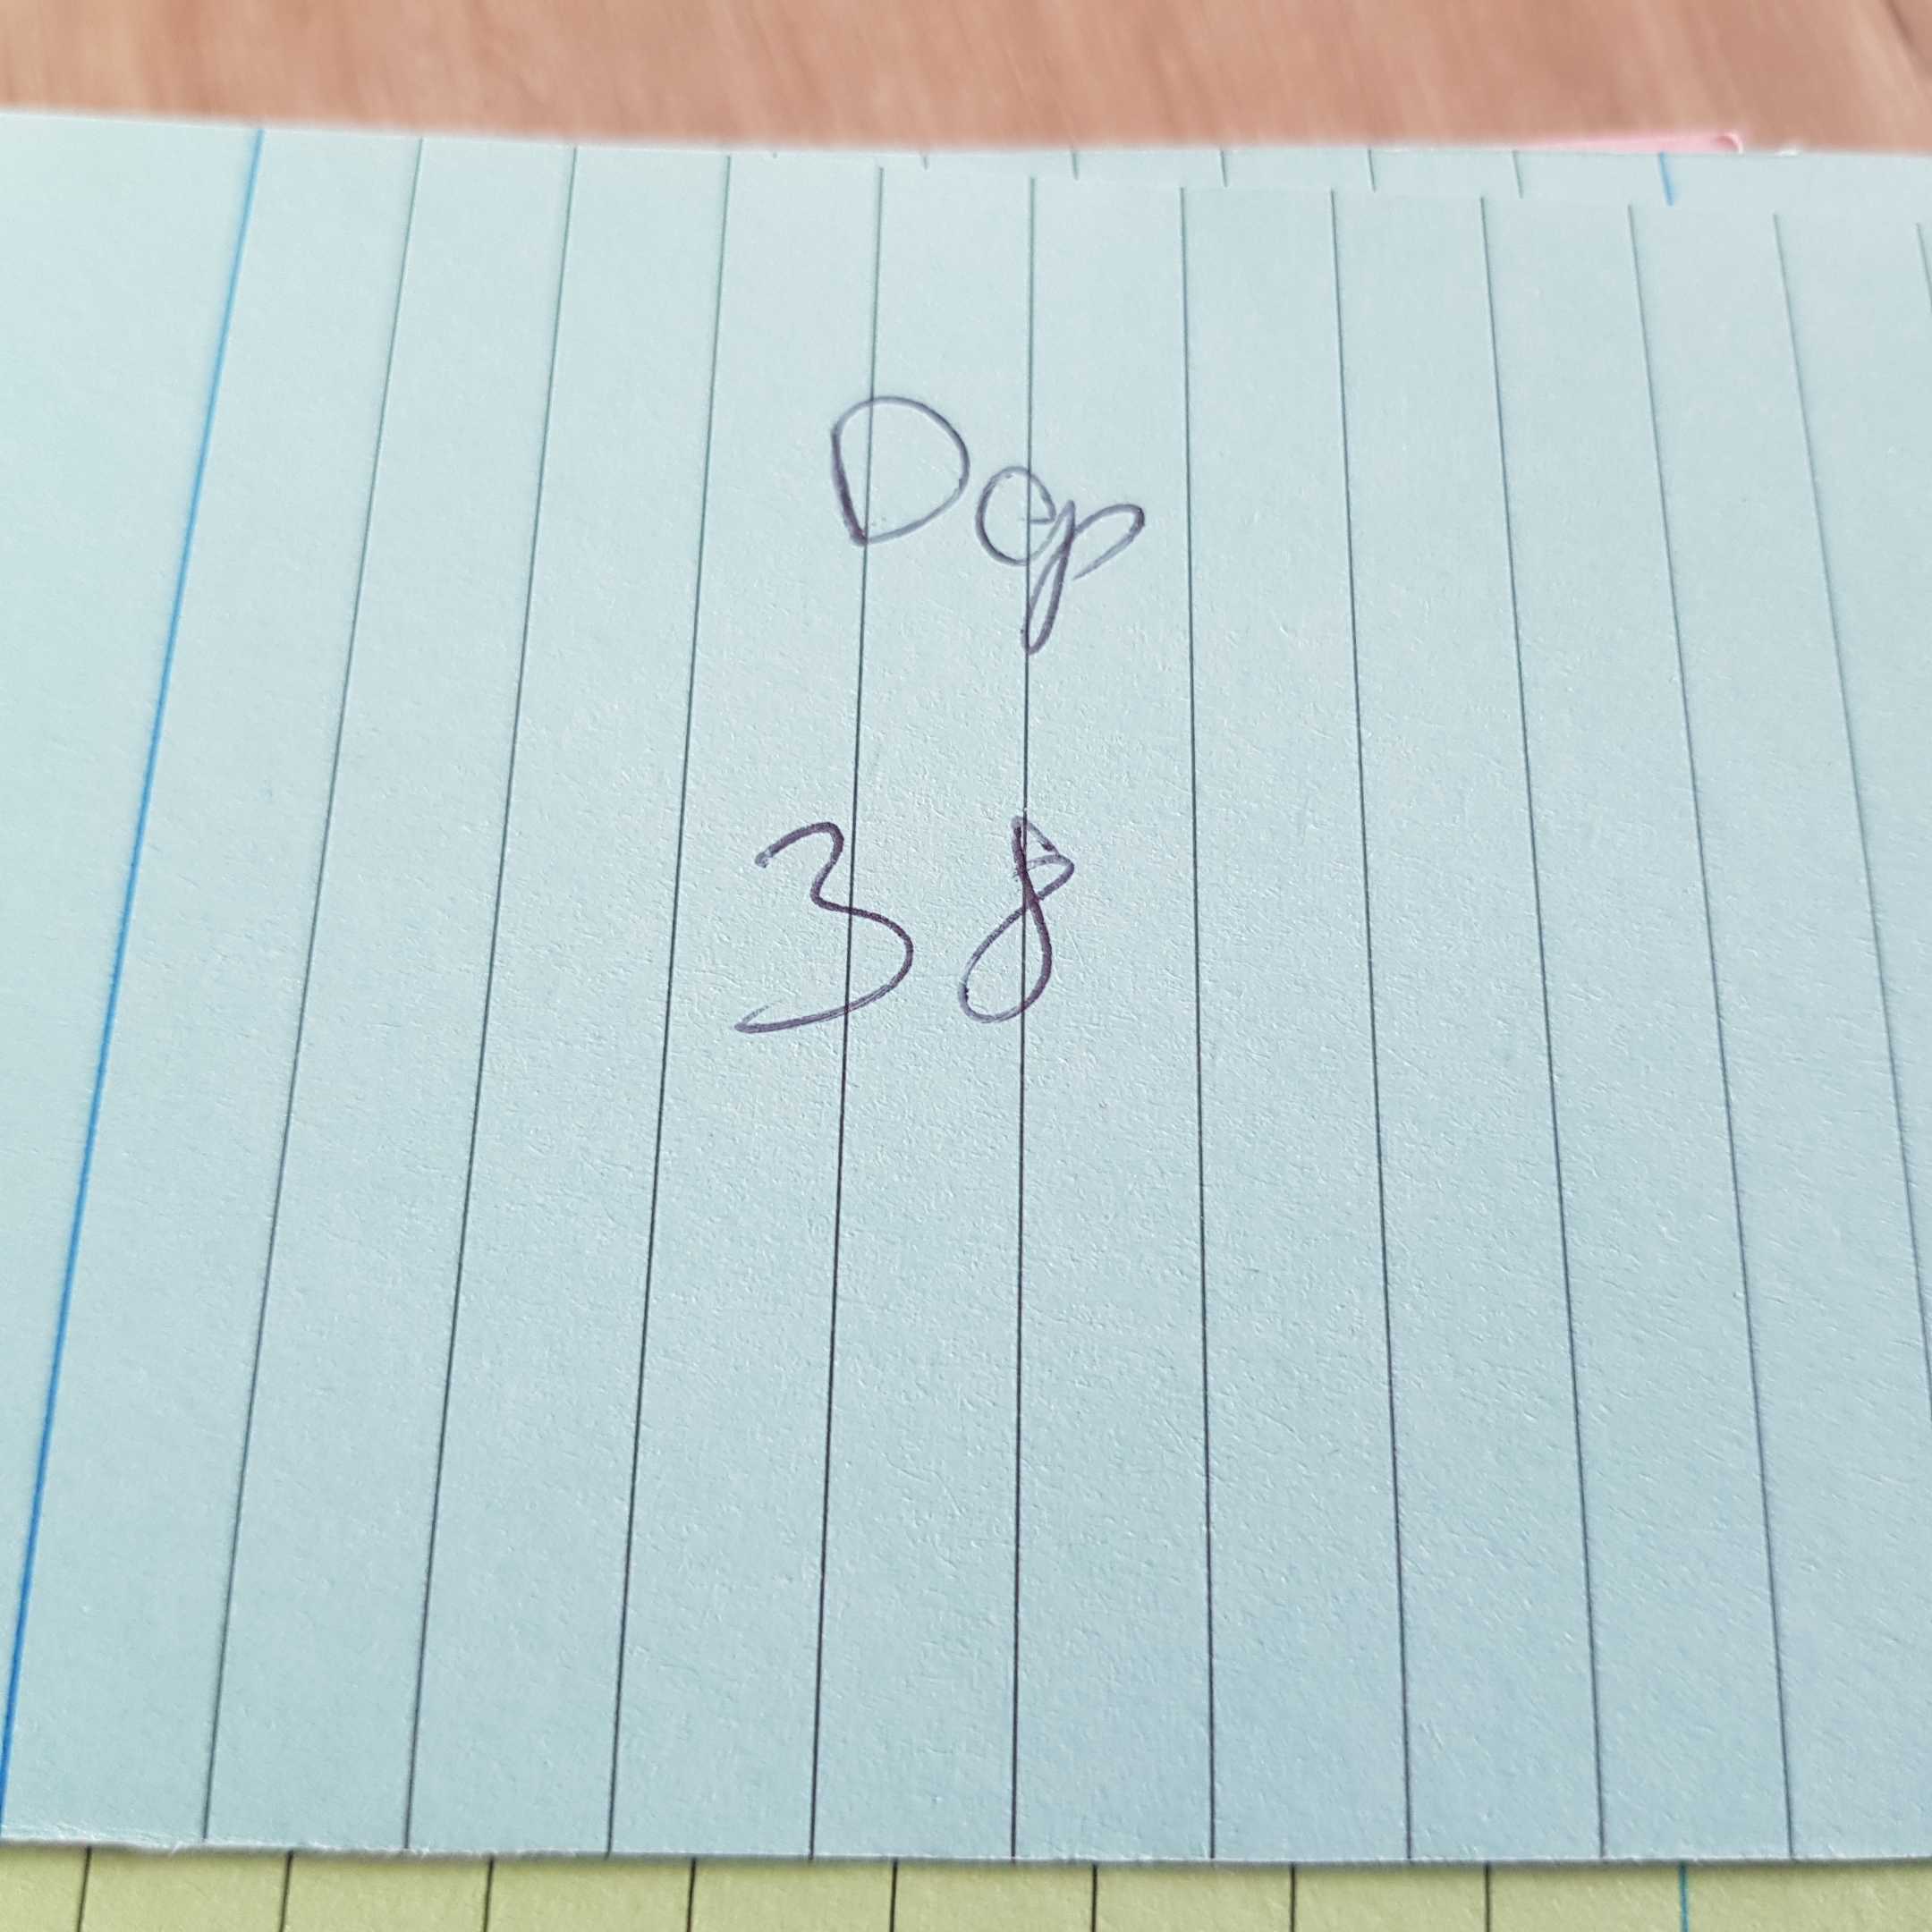 Dep
38